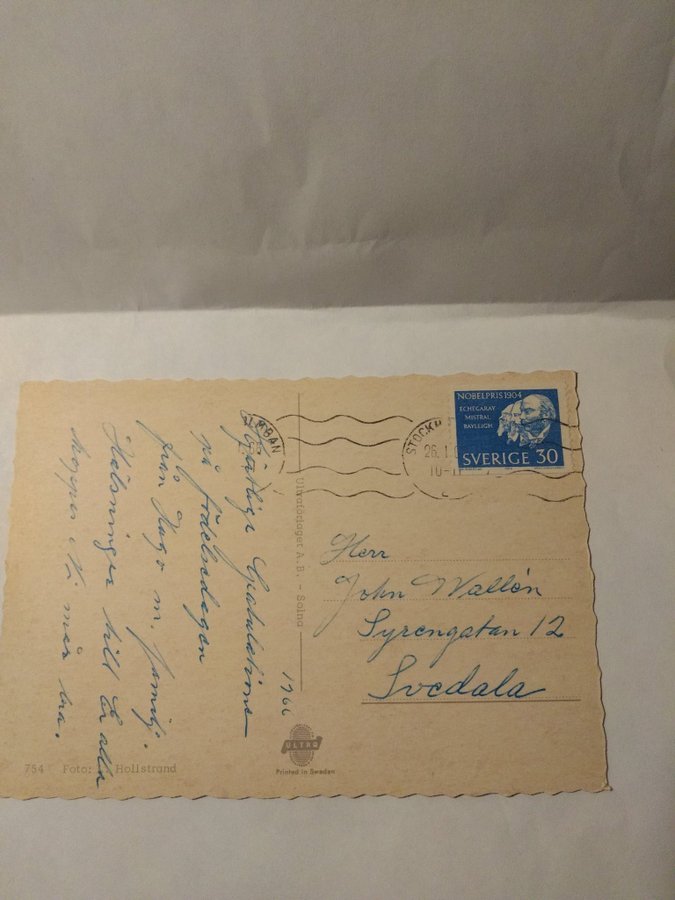 Hjärtliga Gratulationer
på födelsedagen
från Hugo m. familj.
Hälsningar till Er alla
hoppas Ni mår bra.
1966
NOBELPRIS 1904
ECHEGARAY
MISTRAL
RAYLEIGH
SVERIGE 30
STOCK
26.1
10-11
MBAN
Herr
John Wallén
Syrengatan 12
Svedala
Ultraförlaget A.B. - Solna
ULTRA
Printed in Sweden
754 Foto: Hollstrand